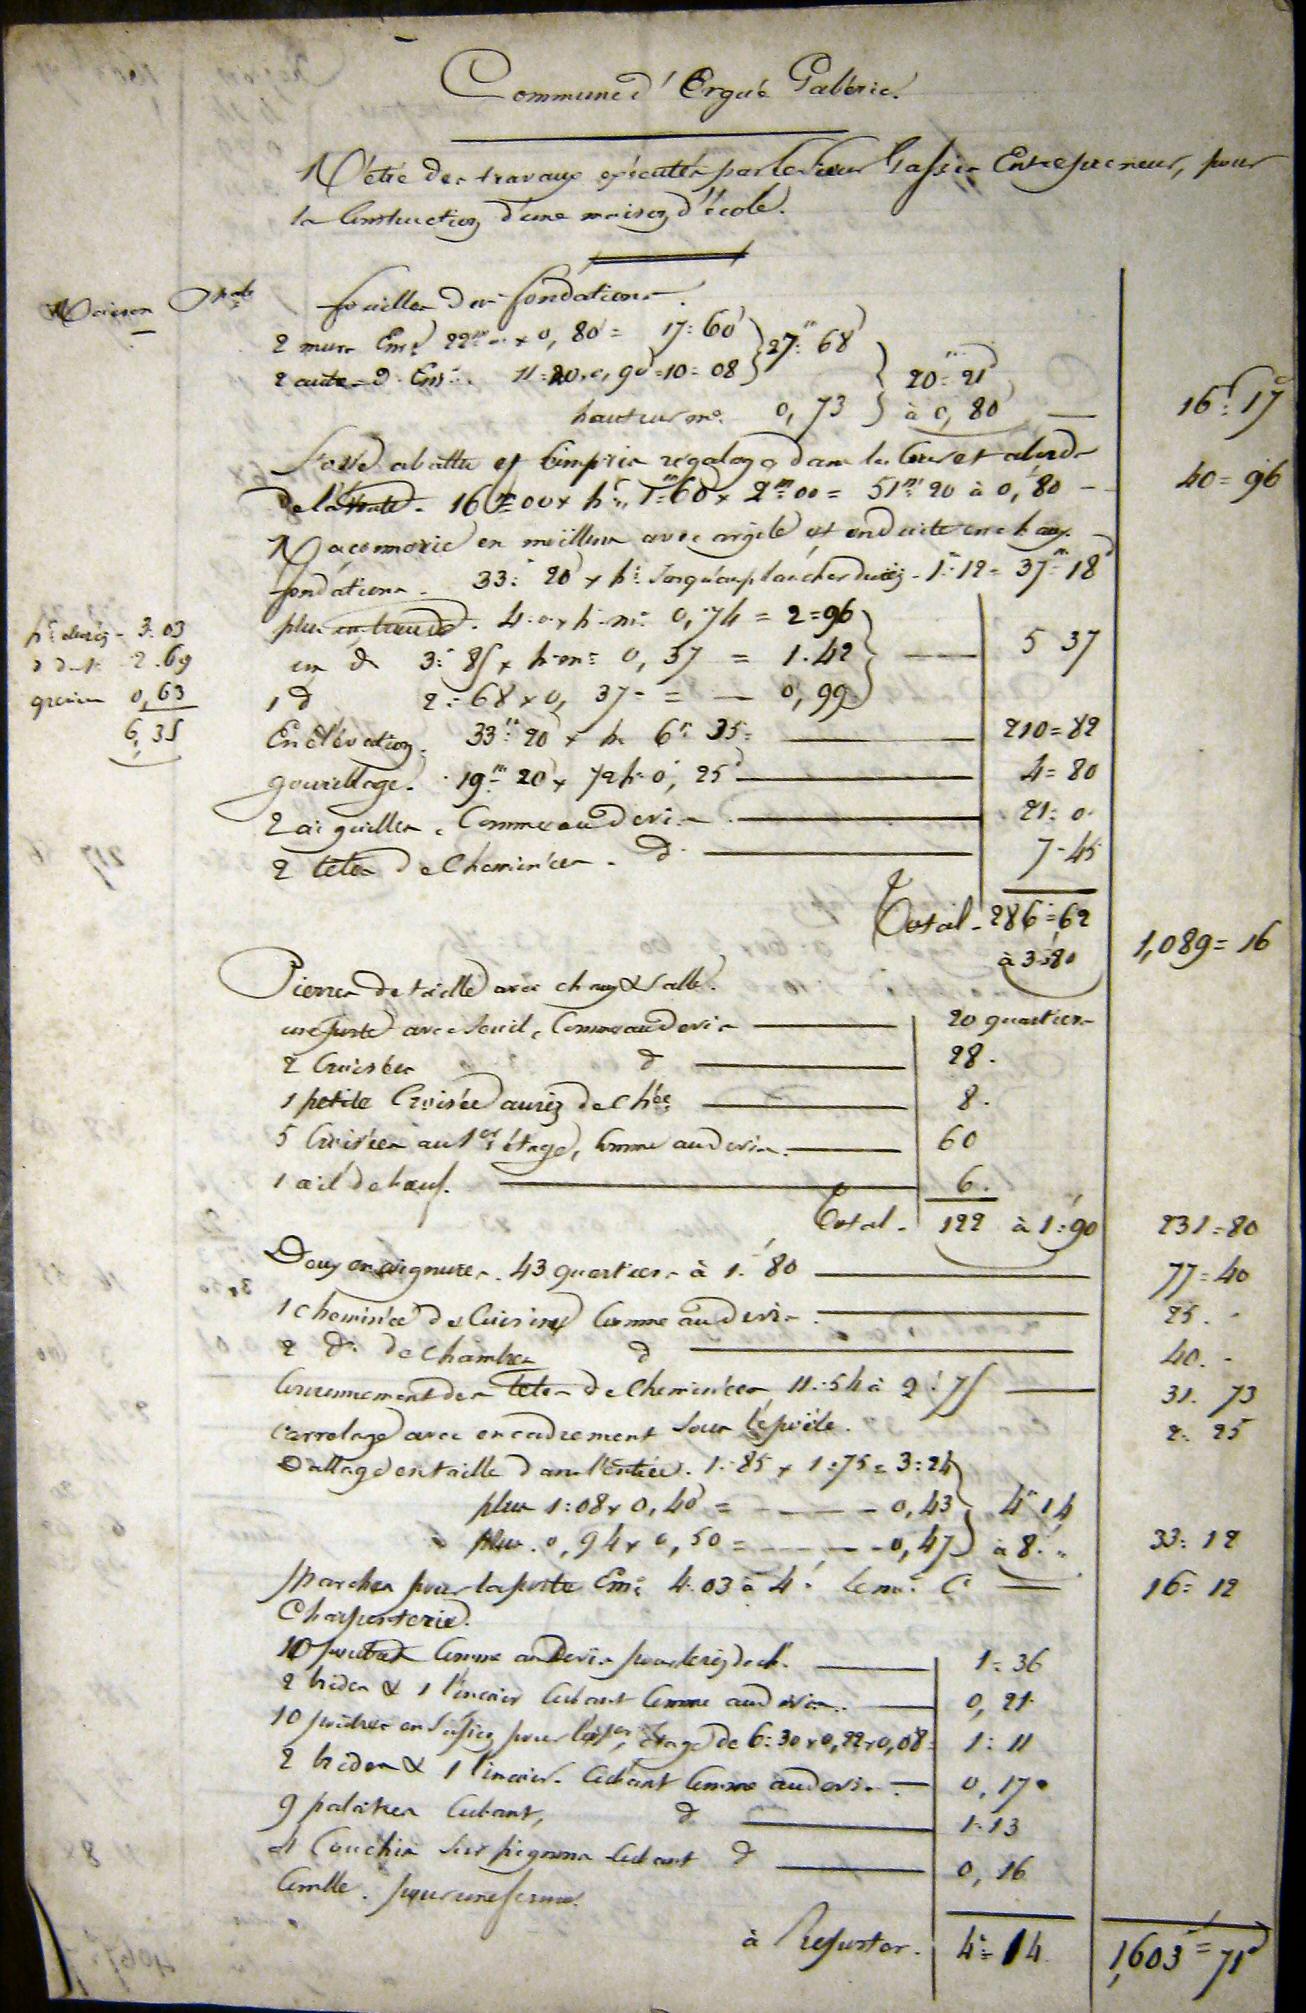 Commune d'Ergué Gabéric.
Métré des travaux exécutés par le sieur Gassis Entrepreneur, pour
la Construction d'une maison d'école.
Maison
fouilles des fondations.
2 murs Ens. 22m × 0,80 = 17=60
2 autres d. Ens. 11=20×0,90=10=08 } 27m 68
hauteur me. 0,73 } 20m=21
à 0,80 — 16f=17c
fossé abattu et terre régalée dans la Cour et abords
de la route. 16m=00 × hr. 1m=60 × 2m=00 = 51m 20 à 0,80 — 40=96
Maçonnerie en moëllons avec argile et enduite en chaux.
fondations. 33m 20 × hr. jusqu'au plancher du rez. 1m=12 = 37m=18
plus 4.0 × h. me 0,74 = 2=96
un d 3=85 × h. me 0,37 = 1.42
1 d 2=68 × 0,37 = — 0,99 } — 5 37
hr. du rez. 3.03
2.69
grenier 0,63
6,35
En élévation. 33m 20 × h. 6m 35 — 210=82
19m=20 × h. 0,25 — 4=80
2 aiguilles, Comme au devis — 21=0.
2 têtes de Cheminées. d. — 7=45
Total. 286=62
à 3f80 1,089=16
Pierres de taille avec chaux & sable.
une porte avec seuil, Comme au devis — 20 quartiers
2 Croisées d — 28.
1 petite Croisée au rez de chée — 8.
5 Croisées au 1er étage, Comme au devis. — 60
1 œil de bœuf. — 6.
Total. 122 à 1f=90 231=80
Deux encoignures. 43 quartiers à 1f 80 — 77=40
1 cheminée de Cuisine Comme au devis. — 25. -
2 d. de chambres d — 40. -
Couronnement des têtes de Cheminées 11.54 à 2f.75 — 31.73
carrelage avec encadrement sous le poële. 2.25
Dallage en taille dans l'entrée. 1.85 × 1.75 = 3.24
plus 1.08 × 0,40 = — 0,43
plus. 0,94 × 0,50 = — 0,47 } 4m 14
à 8f. „ 33=12
Marches pour la porte Ens. 4.03 à 4f. le me. Ct — 16=12
Charpenterie.
10 poutres Comme au devis pour le rez de ch. — 1=36
2 brides & 1 linçoir Cubant Comme au devis. — 0,21
10 poutres en sapin pour le 1er étage de 6=30×0,22×0,08= 1=11
2 brides & 1 linçoir. Cubant Comme au devis — 0,17
9 palâtres Cubant, d — 1=13
4 Couchis sur pignons Cubant d — 0,16
Comble. pour une ferme.
à Reporter. 4m=14 1,603f=71c